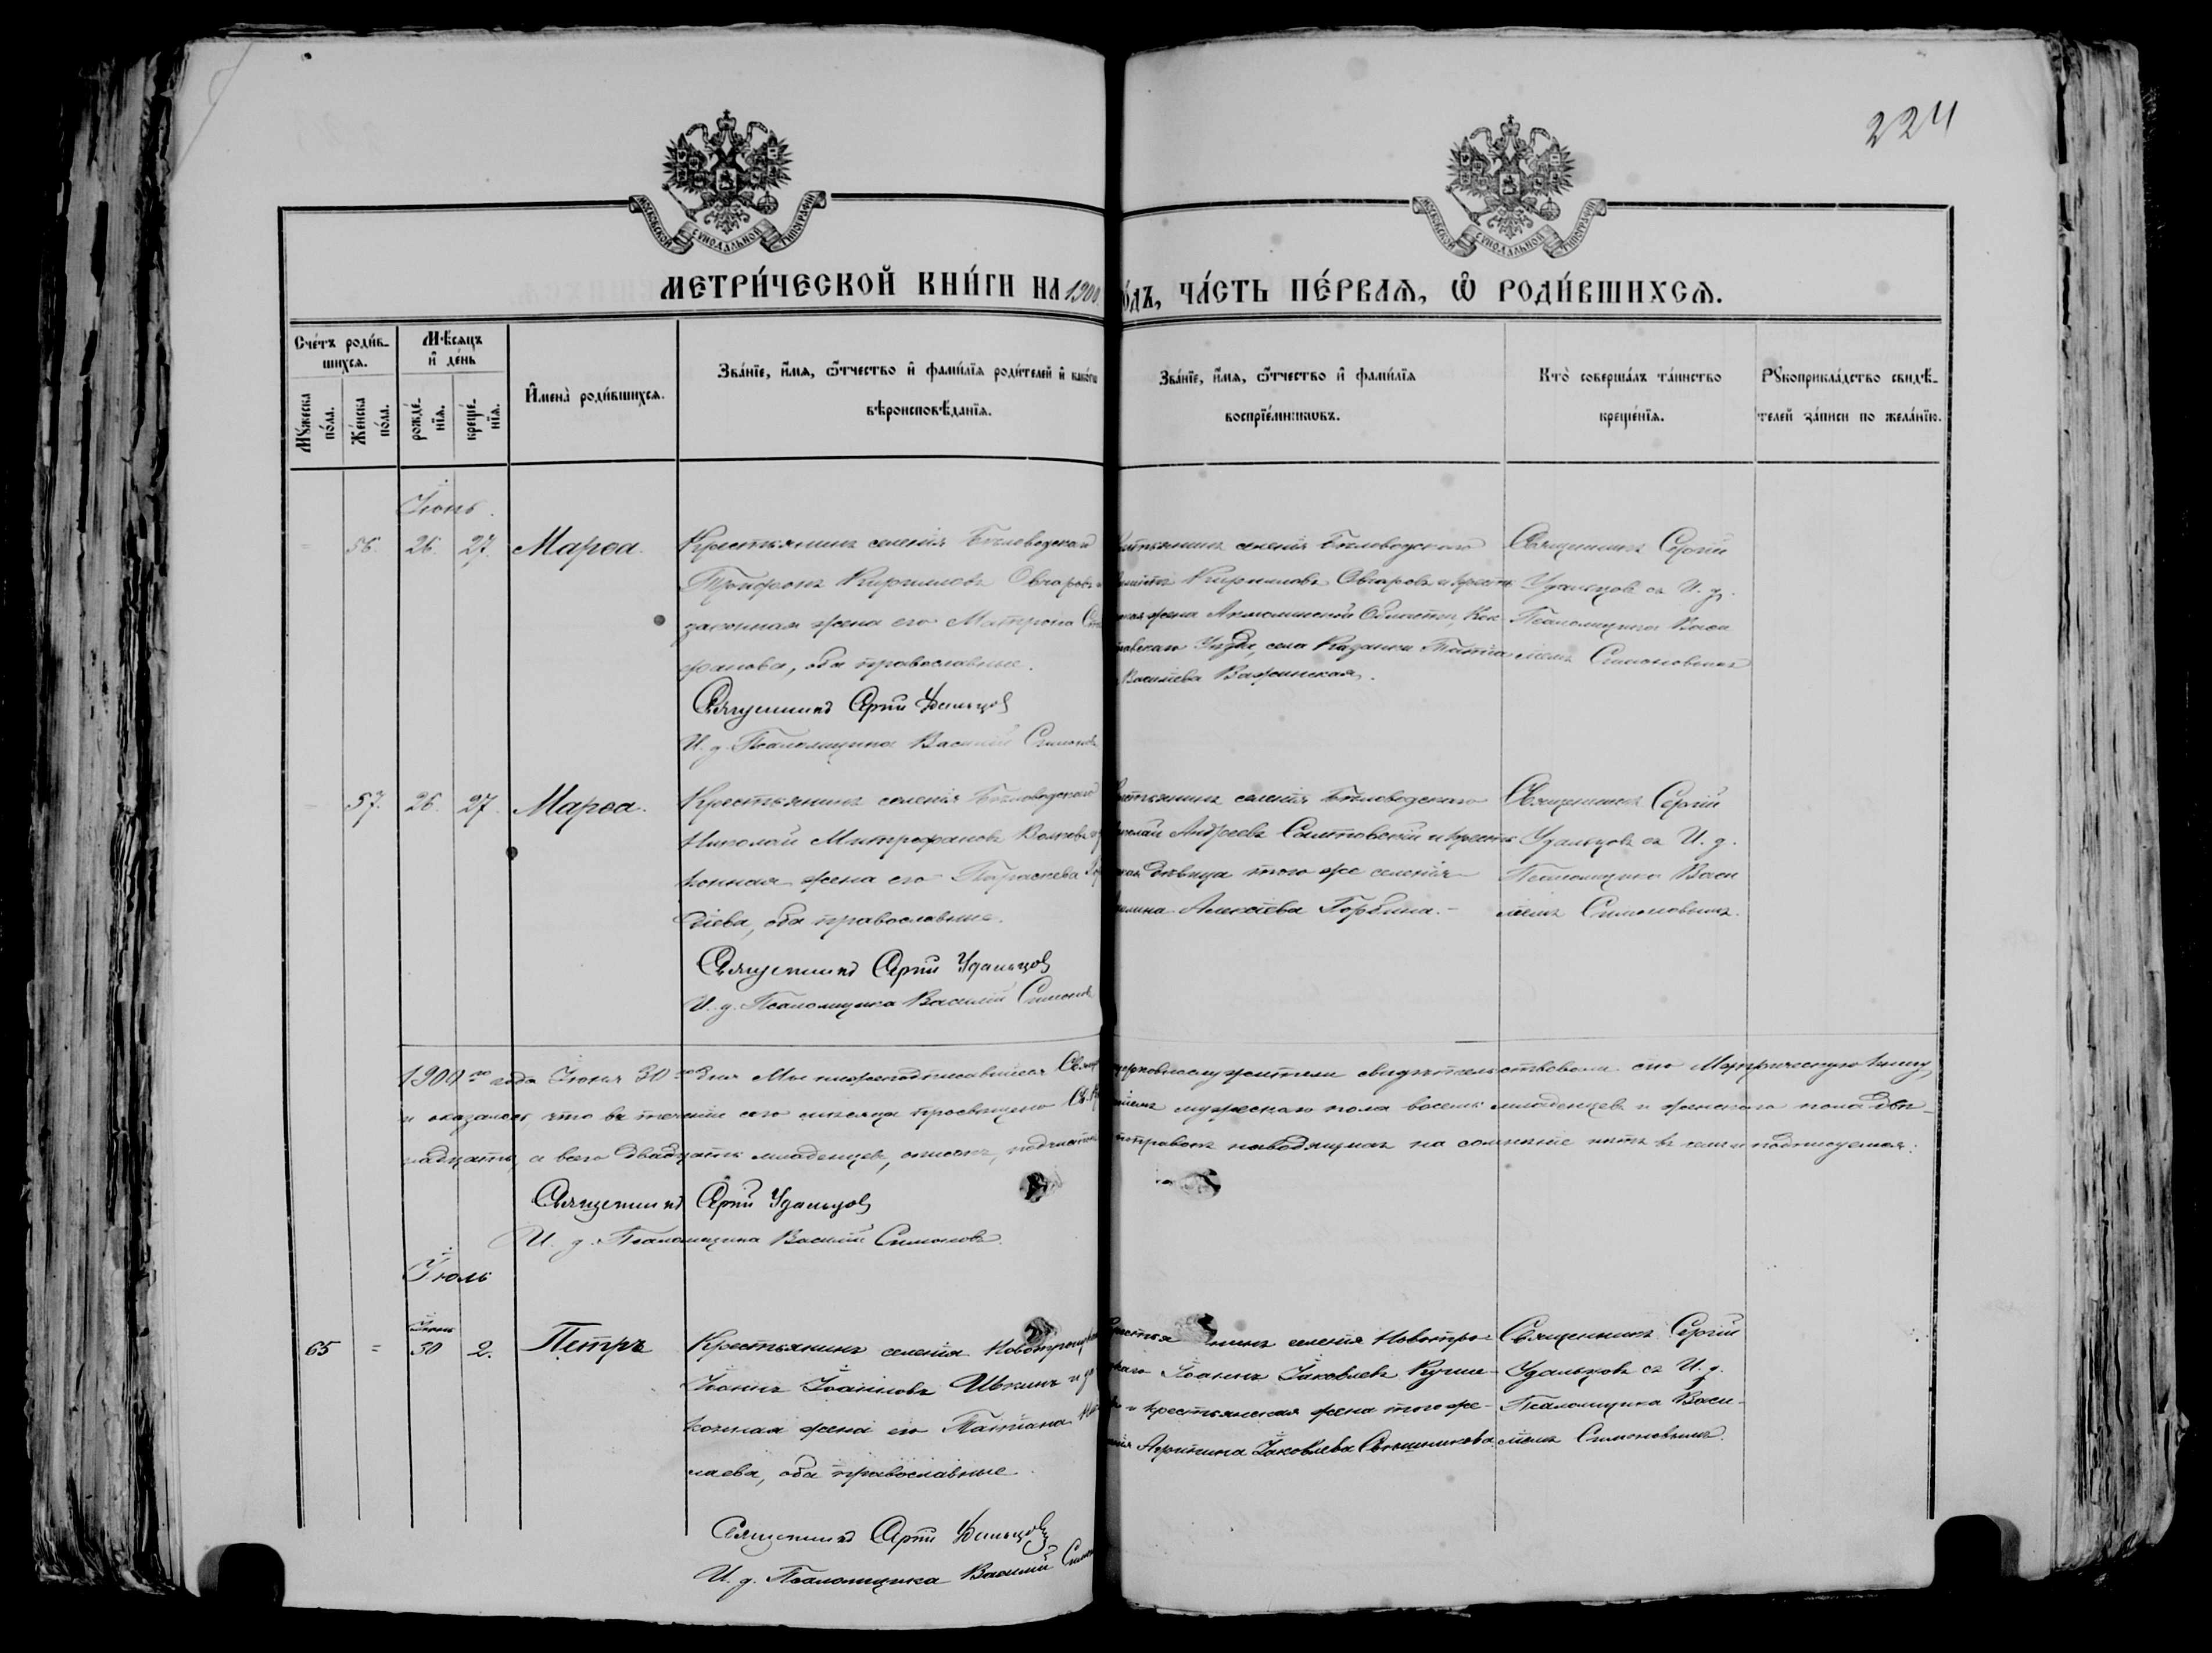 224
МОСКОВСКОЙ СѴНОДАЛЬНОЙ ТИПОГРАФІИ
МОСКОВСКОЙ СѴНОДАЛЬНОЙ ТИПОГРАФІИ
МЕТРИ́ЧЕСКОЙ КНИ́ГИ НА 1900
о́дъ, ЧА́СТЬ ПЕ́РВАѦ, Ѡ҆ РОДИ́ВШИХСѦ.
Сче́тъ роди́в-
шихсѧ.
Мѣ́сѧцъ
и҆ де́нь
Мꙋ́жеска
по́ла.
Же́нска
по́ла.
рожде́-
нїѧ.
креще́-
нїѧ.
И҆мена̀ роди́вшихсѧ.
Зва́нїе, и҆́мѧ, ѻ҆́тчество и҆ фами́лїѧ роди́телей и҆ како́гѡ
вѣроисповѣ́данїѧ.
Зва́нїе, и҆́мѧ, ѻ҆́тчество и҆ фами́лїѧ
воспрїе́мникѡвъ.
Кто̀ соверша́лъ та́инство
креще́нїѧ.
Рꙋкоприкла́дство свидѣ́-
телей за́писи по жела́нїю.
Іюнь.
56. 26. 27. Марѳа.
Крестьянинъ селенія Бѣловодскаго
Трифонъ Кириловъ Овчаровъ и
законная жена его Матрона
фанова, оба православные.
Священникъ Сергій Удальцов
И. д. Псаломщика Василій Симоновъ
селенія Бѣловодскаго
Кириловъ Овчаровъ и крест
жена Акмолинской Области, Кок
Уѣзда, села Казанки Татіа
Василіева Важинская.
Священникъ Сергій
Удальцовъ съ И. д.
Псаломщика Васи
ліемъ Симоновымъ
57. 26. 27. Марѳа.
Крестьянинъ селенія Бѣловодскаго
Николай Митрофановъ Волковъ
конная жена его Параскева
діева, оба православные.
Священникъ Сергій Удальцов
И. д. Псаломщика Василій Симонов
селенія Бѣловодскаго
Андреевъ и крестья
дѣвица того же селенія
Алексѣева
Священникъ Сергій
Удальцовъ съ И. д.
Псаломщика Васи
ліемъ Симоновымъ.
1900го года Іюня 30го дня Мы нижеподписавшіеся Свящ
церковнослужители свидѣтельствовали сію Метрическую книгу,
и оказалось что въ теченіи сего мѣсяца просвѣщено Св.
мужескаго пола восемь младенцевъ и женскаго пола двѣ-
надцать, а всего двадцать младенцевъ, описокъ, подчистокъ
поправокъ наводящихъ на сомнѣніе нѣтъ въ чемъ и подписуемся:
Священникъ Сергій Удальцов
И. д. Псаломщика Василій Симоновъ.
Іюль
65 = Іюнь 30 2. Петръ
Крестьянинъ селенія Новотроицкаго
Іоаннъ Іоанновъ Шкинъ и за
конная жена его Татіана
лаева, оба православные.
Священникъ Сергій Удальцов
И. д. Псаломщика Василій
селенія Новотро-
Іоаннъ Іаковлевъ
и крестьянская жена того же
Агрипина Іаковлева
Священникъ Сергій
Удальцовъ съ И. д.
Псаломщика Васи-
ліемъ Симоновымъ.